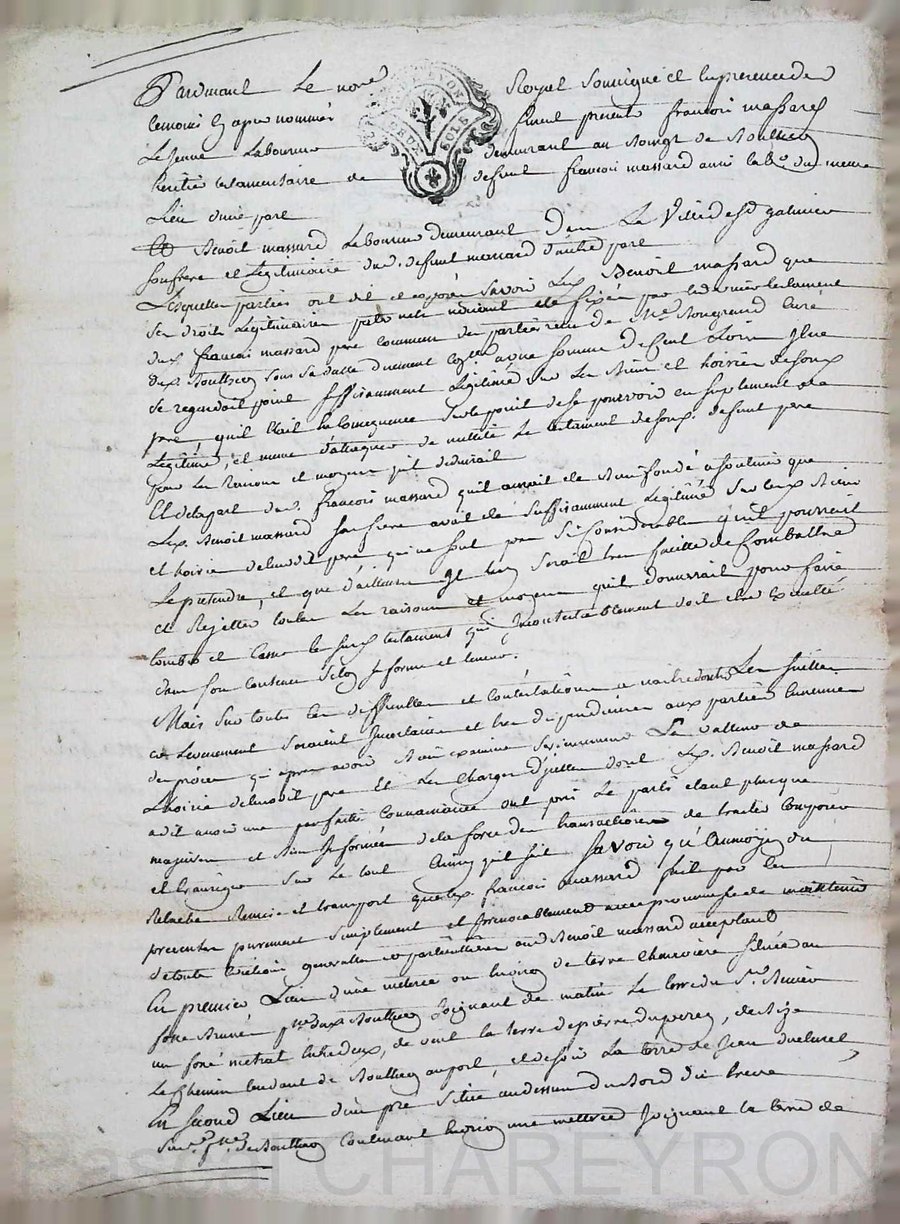 Pardevant Le not.re Royal Soussigné et en presence des
temoins Cy apres nommés fureut presents françois massard
Le Jeune Laboureur demeurant au Bourg de Bouthéon
heritier testamentaire de defunt francois massard aussi lab.r du meme
Lieu d'une part
Et Benoit massard Laboureur demeurant dans La Ville de St galmier
son frere et Légitimaire dud. defunt massard d'autre part
Lesquelles parties ont dit et exposé Savoir Led. Benoit massard que
Ses droits Légitimaires été fixés par le dernier testament
dud. françois massard pere Commun des parties reçu de M.re Curé
dud. Bouthéon sous sa datte duement Contrôlé a une somme de Cent Livres Il ne
Se regardoit point Suffisamment Légitimé sur Les Biens et hoiries de son d.
pere, qu'il étoit En Consequence Sur le point de se pourvoir en suplement de
Légitime, et meme d'attaquer de nullité Le testament de son d. defunt pere
pour Les raisons et moyens qu'il deduirait
Et de la part dud. françois massard qu'il auroit été Bien fondé a soutenir que
Led. Benoit massard Son frere avait été Suffisamment Légitimé Sur Les Biens
et hoirie de leur dit pere qui ne sont pas Si Considerables qu'il pourroit
Le pretendre, et que d'ailleurs Il luy Seroit tres facille de Combattre
et Rejetter toutes Les raisons et moyens qu'il donnerait pour faire
tomber et Casser le susd. testament qui Incontestablement doit etre Executé
dans son Contenu Selon Sa forme et teneur.
Mais Sur toutes Ces difficultés et Contestations a naitre dont Les Suittes
et Evenements Seraient Incertains et tres dispendieux aux parties
de procès qui apres avoir Bien examiné La valleur de
L'hoirie de leur dit pere Et Les Charges d'Icelles dont Led. Benoit massard
a dit avoir une parfaitte Connaissance ont pris Le parti étant plus que
majeurs et Bien Informés de la force des transactions de traiter Composer
et transiger Sur Le tout Ainsy qu'il Suit Savoir qu'au moyen du
Relache Remise et transport que led. françois massard fait par Les
presentes purement Simplement et Irrevocablement avec promesse de maintenir
de toute Eviction generalle et particulliere aud. Benoit massard acceptant
En premier Lieu d'une meterée ou Environ de terre Cheneviere Située au
p.sse dud. Bouthéon Joignant de matin La terre du S.r
un fossé metral entre deux, de vent la terre de pierre duperray, de Bize
Le Chemin tendant de Bouthéon au port, et de soir La terre de Jean
En second Lieu d'un pré Situé au dessus du Bord du
Sud. p.sse de Bouthéon Contenant Environ une metterée Joignant la terre de
Pascal CHAREYRON